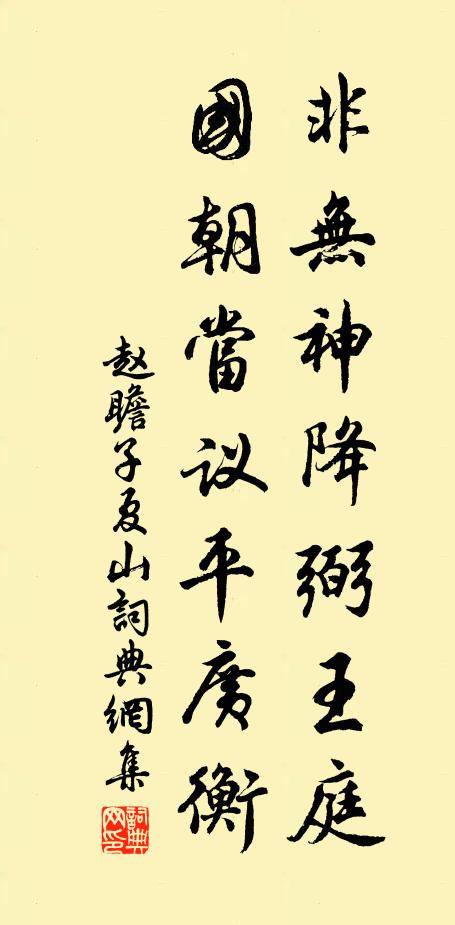 非無神降弼王庭
國朝當议平廣衡
赵瞻子夏山詞典網集
詞典网印